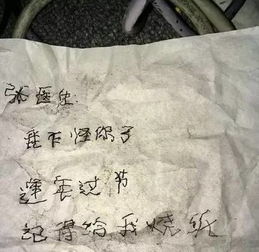 张医生
我不怪你了
逢年过节
记得给我烧纸